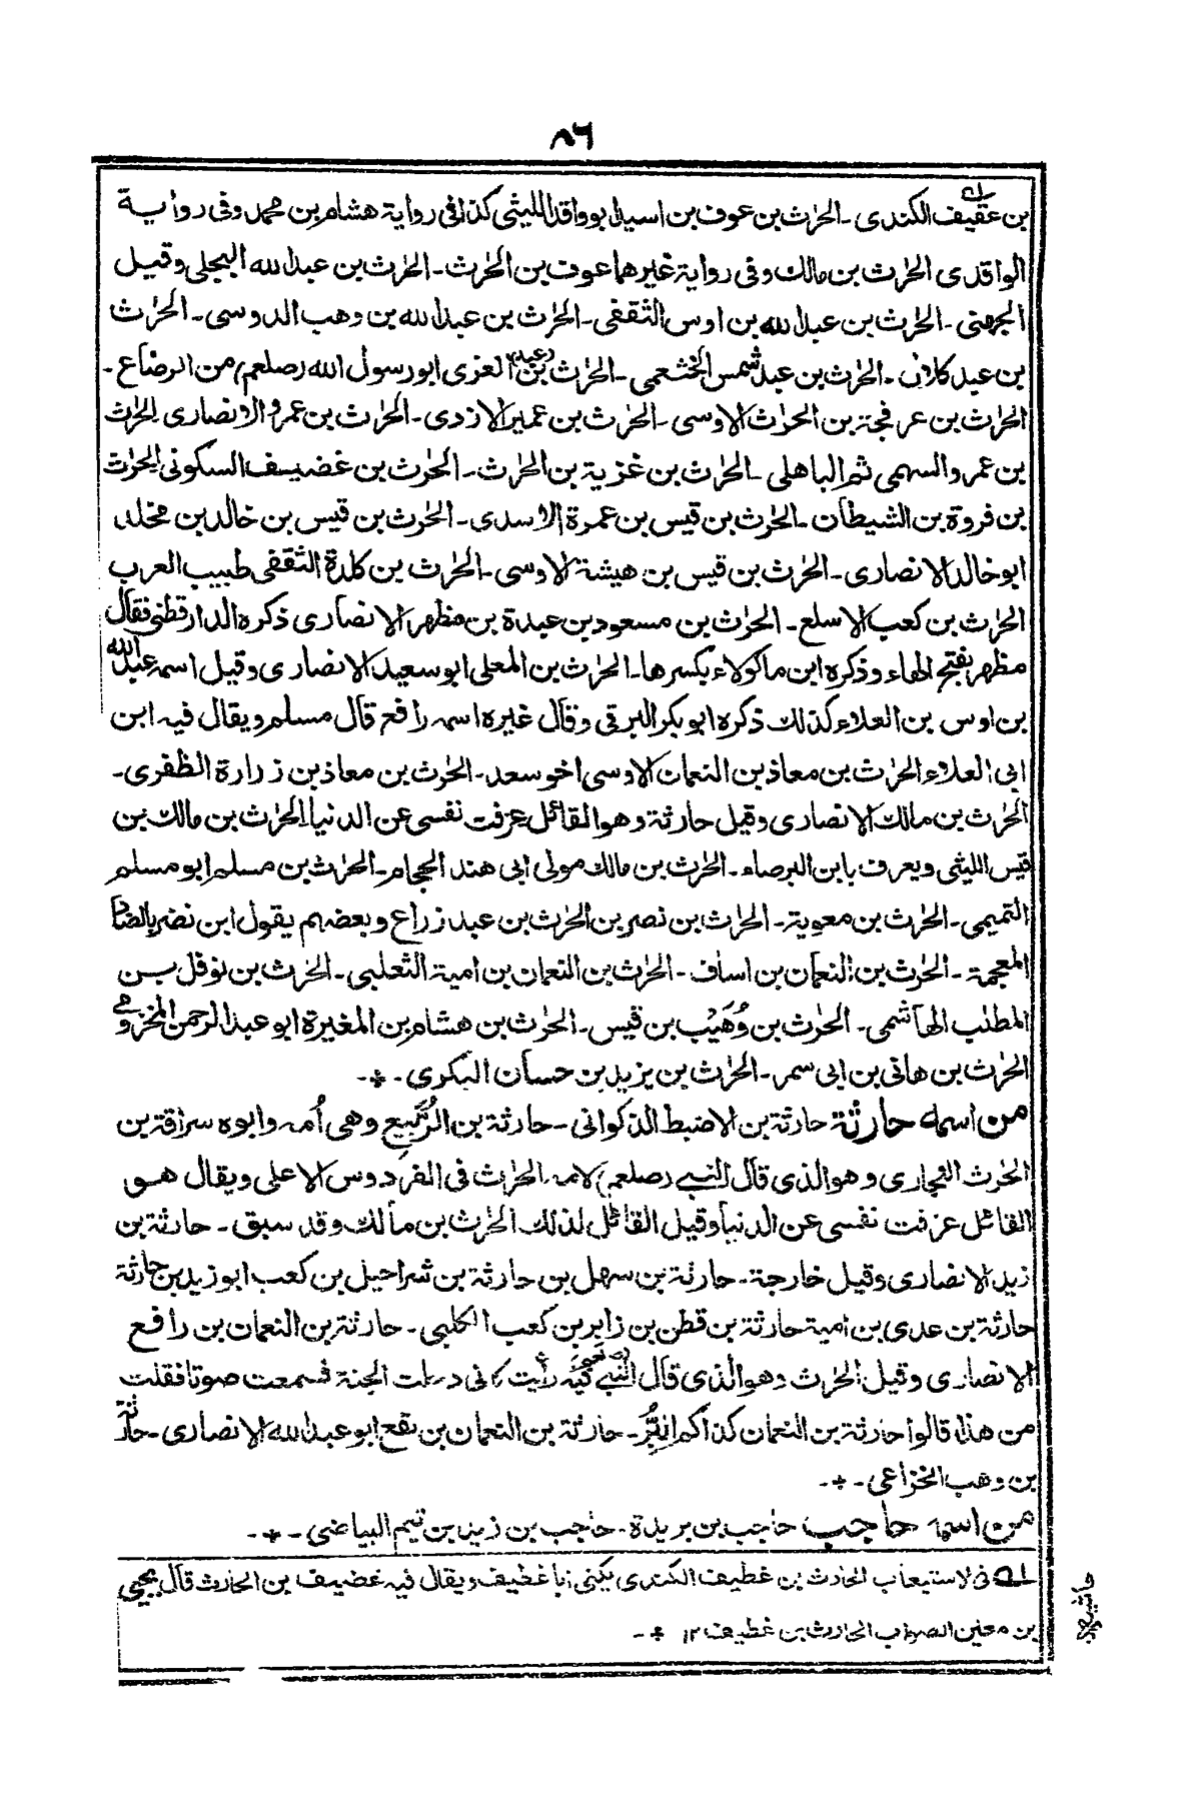 ٨٦
بن عقيف الكندى ـ الحرث بن عوف بن اسيد ابو واقد الليثى كذا فى رواية هشام بن محمد وفى رواية
الواقدى الحرث بن مالك وفى رواية غيرهما عوف بن الحرث ـ الحرث بن عبد الله البجلى وقيل
الجهنى ـ الحرث بن عبد الله بن اوس الثقفى ـ الحرث بن عبد الله بن وهب الدوسى ـ الحرث
بن عبد كلال ـ الحرث بن عبد شمس الخثعمى ـ الحرث بن (عبد) العزى ابو رسول الله (صلعم) من الرضاع ـ
الحرث بن عرفجة بن الحرث الاوسى ـ الحرث بن عمير الازدى ـ الحرث بن عمرو الانصارى الحرث
بن عمرو السهمى ثم الباهلى ـ الحرث بن غزية بن الحرث ـ الحرث بن غضيف السكونى الحرث
بن فروة بن الشيطان ـ الحرث بن قيس بن عمرة الاسدى ـ الحرث بن قيس بن خالد بن مخلد
ابو خالد الانصارى ـ الحرث بن قيس بن هيشة الاوسى ـ الحرث بن كلدة الثقفى طبيب العرب
الحرث بن كعب الاسلع ـ الحرث بن مسعود بن عبدة بن مظهر الانصارى ذكره الدارقطنى فقال
مظهر بفتح الهاء وذكره ابن ماكولاء بكسرها ـ الحرث بن المعلى ابو سعيد الانصارى وقيل اسمه عبد الله
بن اوس بن العلاء كذلك ذكره ابو بكر البرقى وقال غيره اسمه رافع قال مسلم ويقال فيه ابن
ابى العلاء الحرث بن معاذ بن النعمان الاوسى اخو سعد ـ الحرث بن معاذ بن زرارة الظفرى ـ
الحرث بن مالك الانصارى وقيل حارثة وهو القائل عزفت نفسى عن الدنيا الحرث بن مالك بن
قيس الليثى ويعرف بابن البرصاء ـ الحرث بن مالك مولى ابى هند الحجام ـ الحرث بن مسلم ابو مسلم
التميمى ـ الحرث بن معوية ـ الحرث بن نصر بن الحرث بن عبد زراع وبعضهم يقول ابن نضر بالضاد
المعجمة ـ الحرث بن النعمان بن اساف ـ الحرث بن النعمان بن امية الثعلبى ـ الحرث بن نوفل بن
المطلب الهاشمى ـ الحرث بن وُهَيْب بن قيس ـ الحرث بن هشام بن المغيرة ابو عبد الرحمن المخزومى
الحرث بن هانى بن ابى سمر ـ الحرث بن يزيد بن حسان البكرى ـ ٭ ـ
من اسمه حارثة حارثة بن الاضبط الذكوانى ـ حارثة بن الرُّبَيِّع وهى اُمه وابوه سراقة بن
الحرث النجارى وهو الذى قال النبى (صلعم) لامه الحرث فى الفردوس الاعلى ويقال هو
القائل عزفت نفسى عن الدنيا وقيل القائل لذلك الحرث بن مالك وقد سبق ـ حارثة بن
زيد الانصارى وقيل خارجة ـ حارثة بن سهل بن حارثة بن شراحيل بن كعب ابو زيد بن حارثة
حارثة بن عدى بن امية حارثة بن قطن بن زابر بن كعب الكلبى ـ حارثة بن النعمان بن رافع
الانصارى وقيل الحرث وهو الذى قال النبى فيه رأيت كانى دخلت الجنة فسمعت صوتا فقلت
من هذا قالوا حارثة بن النعمان كذاكم البِرُّ ـ حارثة بن النعمان بن نقع ابو عبد الله الانصارى ـ حارثة
بن وهب الخزاعى ـ ٭ ـ
من اسمه حاجب حاجب بن بريدة ـ حاجب بن زيد بن تيم البياضى ـ ٭ ـ
لـ٥ فى الاستيعاب الحارث بن غطيف الكندى يكنى ابا غطيف ويقال فيه غضيف بن الحارث قال يحيى
بن معين الصواب الحارث بن غطيف ١٢ ٭ ـ